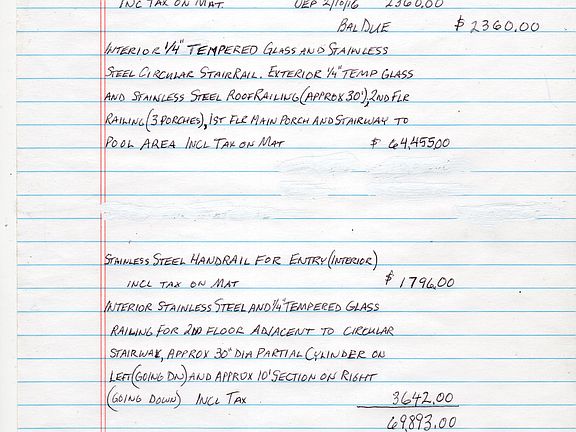 INC TAX ON MAT. DEP 2/10/16 2360.00
BAL DUE $ 2360.00
INTERIOR 1/4" TEMPERED GLASS AND STAINLESS
STEEL CIRCULAR STAIR RAIL. EXTERIOR 1/4" TEMP GLASS
AND STAINLESS STEEL ROOF RAILING (APPROX 30'), 2ND FLR
RAILING (3 PORCHES), 1ST FLR MAIN PORCH AND STAIRWAY TO
POOL AREA INCL TAX ON MAT $ 64,455.00
STAINLESS STEEL HANDRAIL FOR ENTRY (INTERIOR)
INCL TAX ON MAT $ 1796.00
INTERIOR STAINLESS STEEL AND 1/4" TEMPERED GLASS
RAILING FOR 2ND FLOOR ADJACENT TO CIRCULAR
STAIRWAY, APPROX 30" DIA PARTIAL CYLINDER ON
LEFT (GOING DN) AND APPROX 10' SECTION ON RIGHT
(GOING DOWN) INCL TAX 3642.00
69,893.00